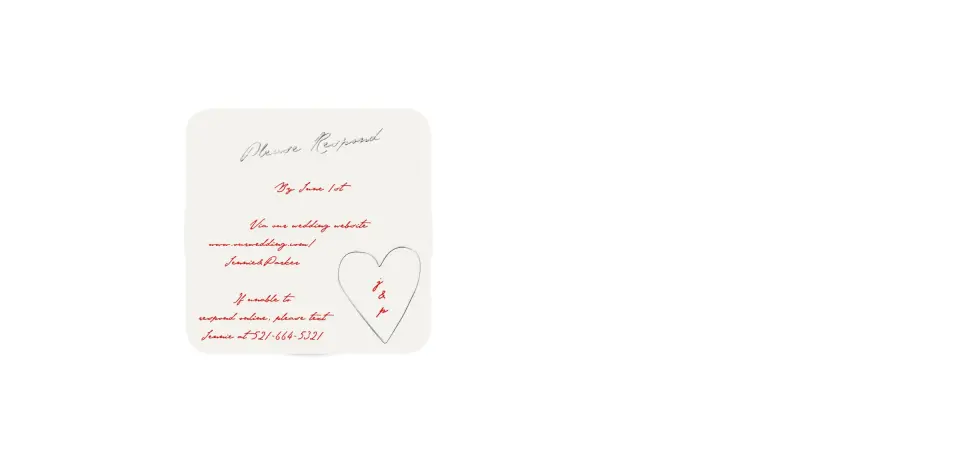 Please Respond
By June 1st
Via our wedding website
www.ourwedding.com/
Jennie&Parker
If unable to
respond online, please text
Jennie at 521-664-5321
j
&
p